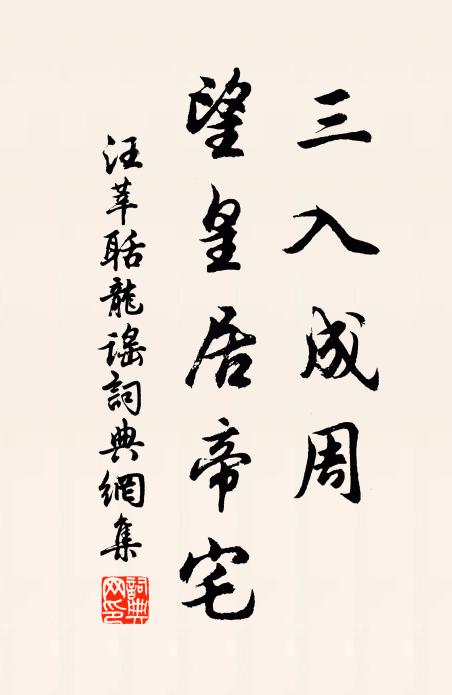 三入成周
望皇居帝宅
汪莘聒龍謠詞典網集
詞典網印